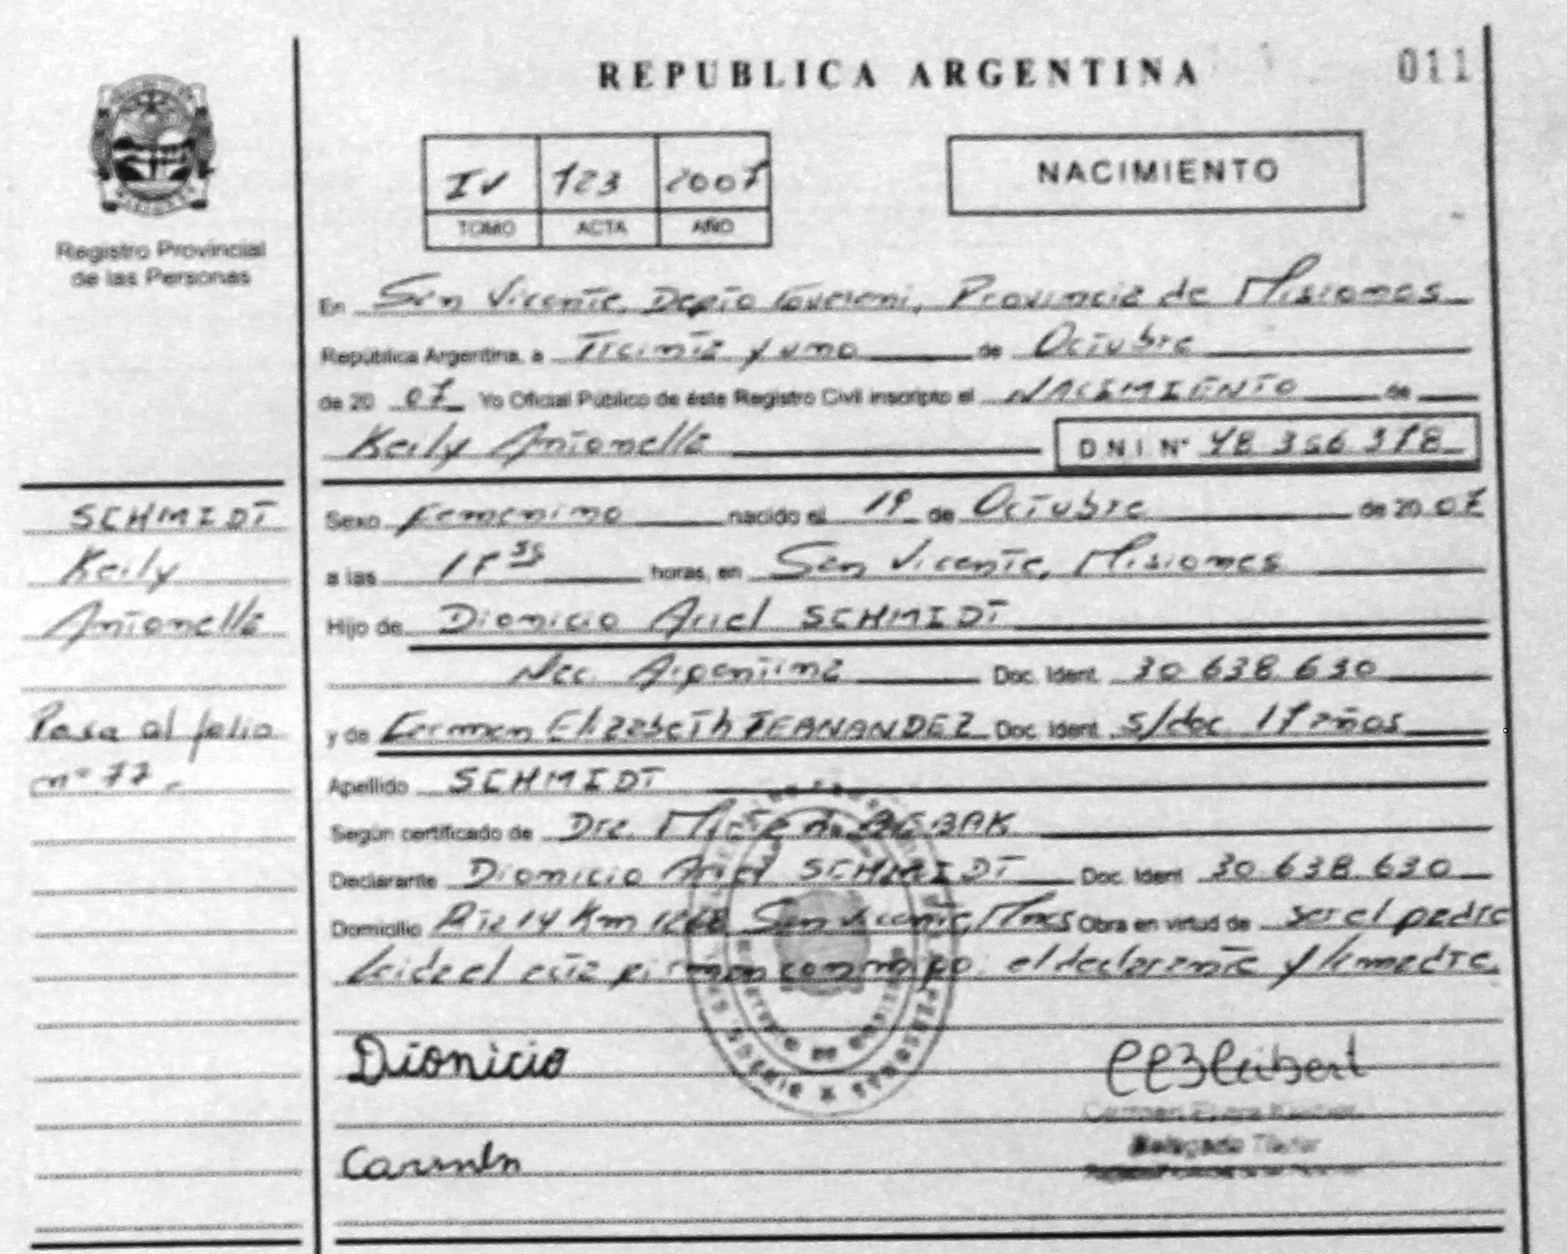 REPUBLICA ARGENTINA
011
IV 123 2007
TOMO ACTA AÑO
NACIMIENTO
Registro Provincial
de las Personas
En San Vicente, Depto Guarani, Provincia de Misiones
República Argentina, a Treinta y uno de Octubre
de 20 07 Yo Oficial Público de éste Registro Civil inscripto el NACIMIENTO de
Keily Antonella
D.N.I. N° 48.356.378
SCHMIDT
Keily
Antonella
Pasa al folio
n° 77
Sexo Femenino nacido el 19 de Octubre de 20 07
a las horas, en San Vicente, Misiones
Hijo de Dionicio Ariel SCHMIDT
Nac. Argentina Doc. Ident. 30.638.630
y de Carmen Elizabeth FERNANDEZ Doc. Ident. s/doc 17 años
Apellido SCHMIDT
Según certificado de Dra.
Declarante Dionicio Ariel SCHMIDT Doc. Ident 30.638.630
Domicilio Rta 14 Km 1268 San Vicente, Mnes Obra en virtud de ser el padre
Leida el acta firman conmigo el declarante y la madre.
Dionicio
Carmen
Delegado Titular